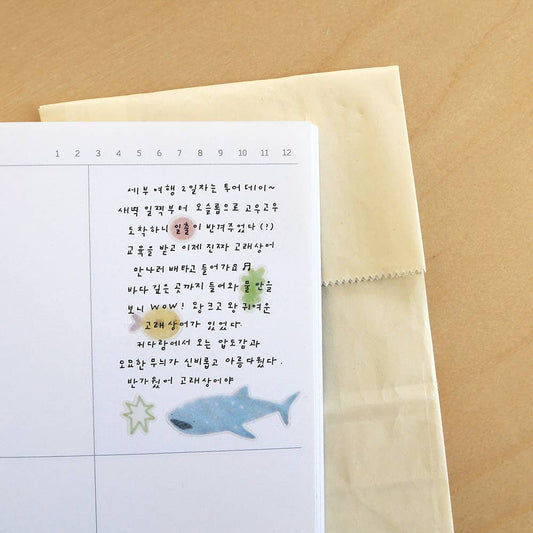 1 2 3 4 5 6 7 8 9 10 11 12
세부여행 2일차는 투어데이~
새벽 일찍부터 오슬롭으로 고우고우
도착하니 일출이 반겨주었다(!)
교육을 받고 이제 진짜 고래상어
만나러 배타고 들어가요♬
바다 깊은 곳까지 들어와 물 안을
보니 WOW! 왕크고 왕귀여운
고래상어가 있었다.
커다람에서 오는 압도감과
오묘한 무늬가 신비롭고 아름다웠다.
반가웠어 고래상어야